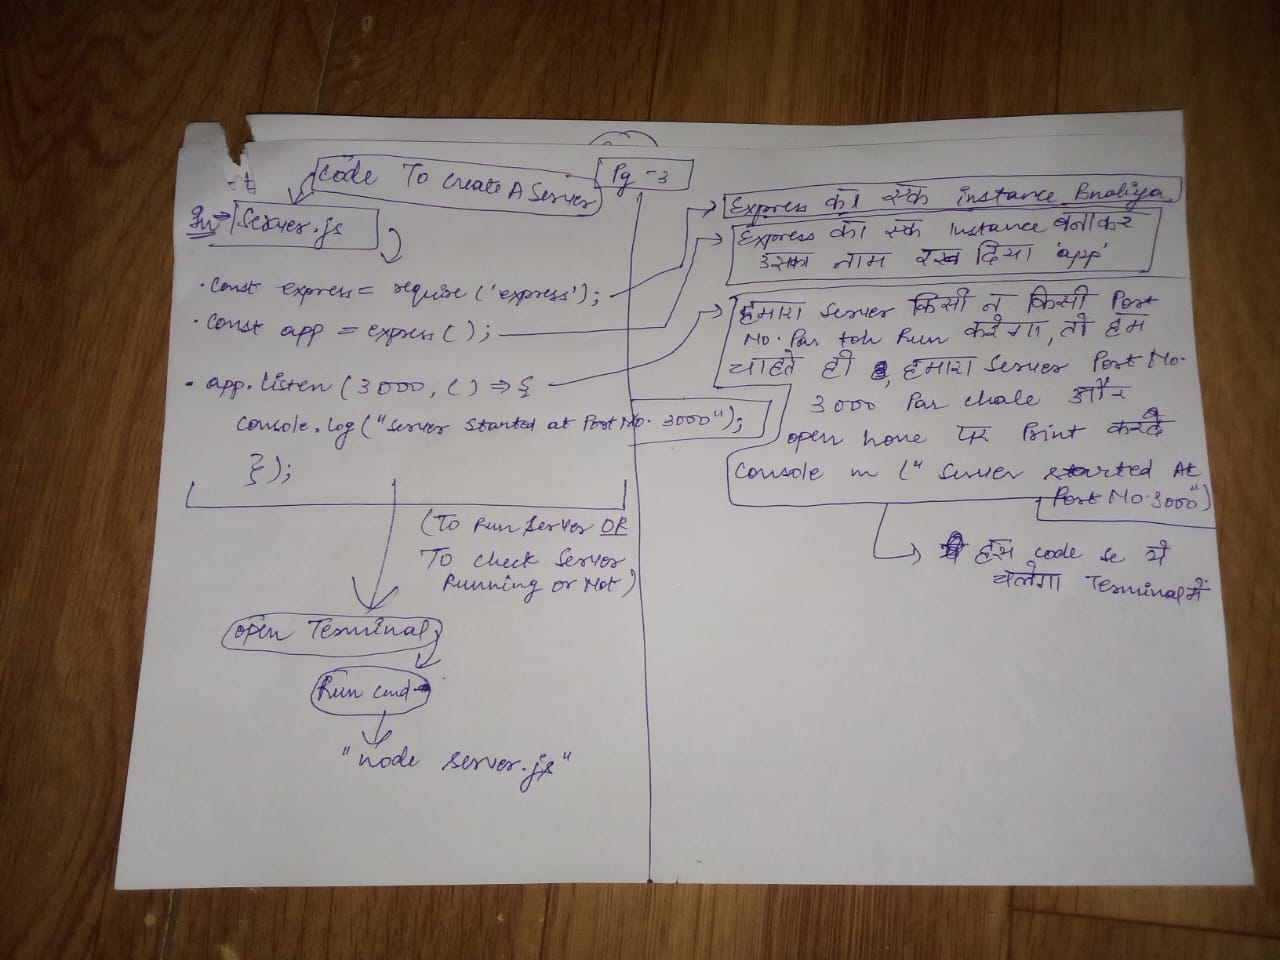 Code To Create A Server
Pg - 3
In → Server.js
• const express = require('express');
• const app = express();
• app.listen(3000, () => {
console.log("Server started at Port No. 3000");
});
(To Run Server OR
To check Server
Running or Not)
open Terminal
Run cmd
"node server.js"
Express का एक instance Bnaliya
Express का एक instance बनाकर
उसका नाम रख दिया 'app'
हमारा Server किसी न किसी Port
No. Par toh Run करेगा, तो हम
चाहते ही , हमारा Server Port No.
3000 Par chale और
open hone पर Print करदे
Console m (" Server started At
Port No. 3000")
इस code se ये
चलेगा Terminal में